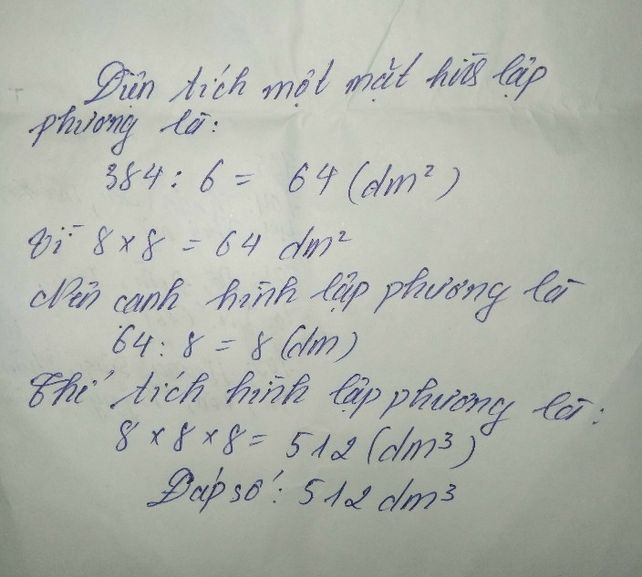 Diện tích một mặt hình lập
phương là:
384 : 6 = 64 (dm²)
Vì 8 × 8 = 64 dm²
Nên cạnh hình lập phương là
64 : 8 = 8 (dm)
Thể tích hình lập phương là:
8 × 8 × 8 = 512 (dm³)
Đáp số: 512 dm³